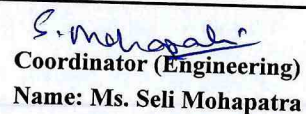 S. Mohapatra
Coordinator (Engineering)
Name: Ms. Seli Mohapatra